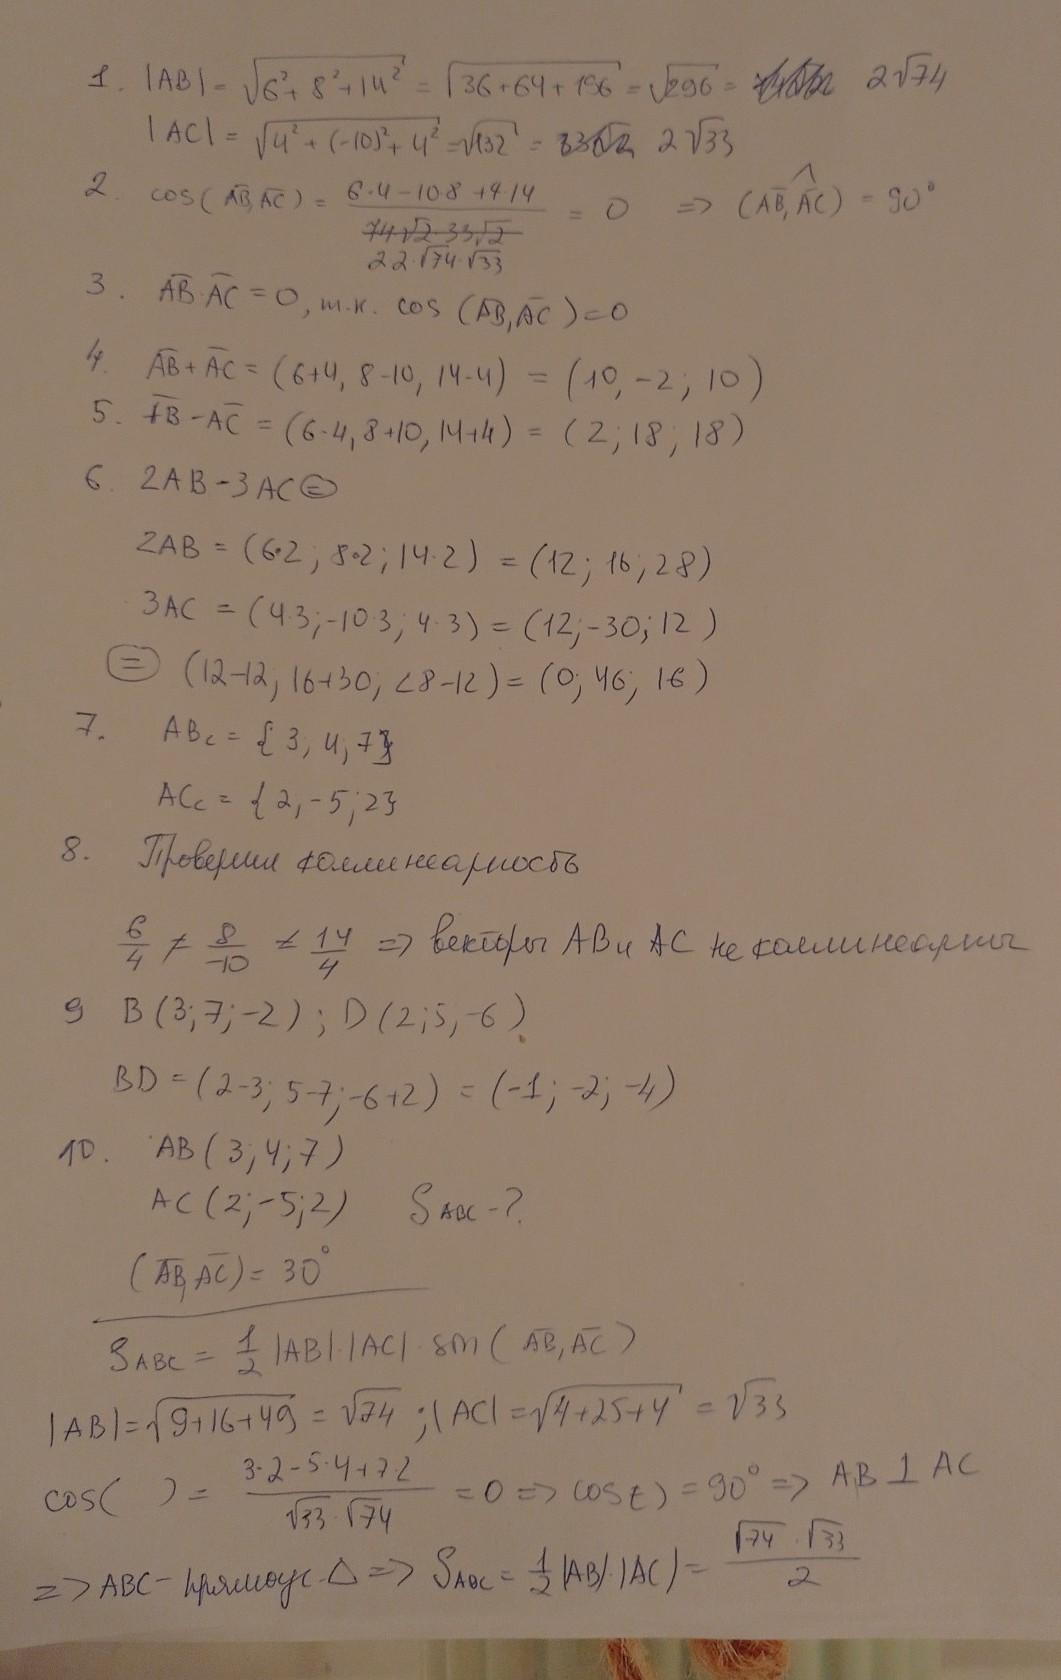 1. |AB| = √(6²+8²+14²) = √(36+64+196) = √296 = 2√74
|AC| = √(4²+(-10)²+4²) = √132 = 2√33
2. cos(AB,AC) = (6·4-10·8+4·14)/(2·2·√74·√33) = 0 => (AB,AC) = 90°
3. AB·AC = 0, т.к. cos (AB,AC) = 0
4. AB+AC = (6+4, 8-10, 14-4) = (10, -2; 10)
5. AB-AC = (6-4, 8+10, 14+4) = (2; 18; 18)
6. 2AB-3AC =
2AB = (6·2; 8·2; 14·2) = (12; 16; 28)
3AC = (4·3; -10·3; 4·3) = (12; -30; 12)
= (12-12; 16+30; 28-12) = (0; 46; 16)
7. ABc = {3, 4; 7}
ACc = {2, -5; 2}
8. Проверим коллинеарность
6/4 ≠ 8/-10 ≠ 14/4 => векторы AB и AC не коллинеарны
9 B(3; 7; -2); D(2; 5, -6)
BD = (2-3; 5-7; -6+2) = (-1; -2; -4)
10. AB(3; 4; 7)
AC(2; -5; 2) S ABC - ?
(AB, AC) = 30°
S ABC = 1/2 |AB|·|AC|·sin(AB, AC)
|AB| = √(9+16+49) = √74; |AC| = √(4+25+4) = √33
cos( ) = (3·2-5·4+7·2)/(√33·√74) = 0 => cos( ) = 90° => AB ⊥ AC
=> ABC - прямоуг. Δ => S ABC = 1/2 |AB|·|AC| = (√74·√33)/2